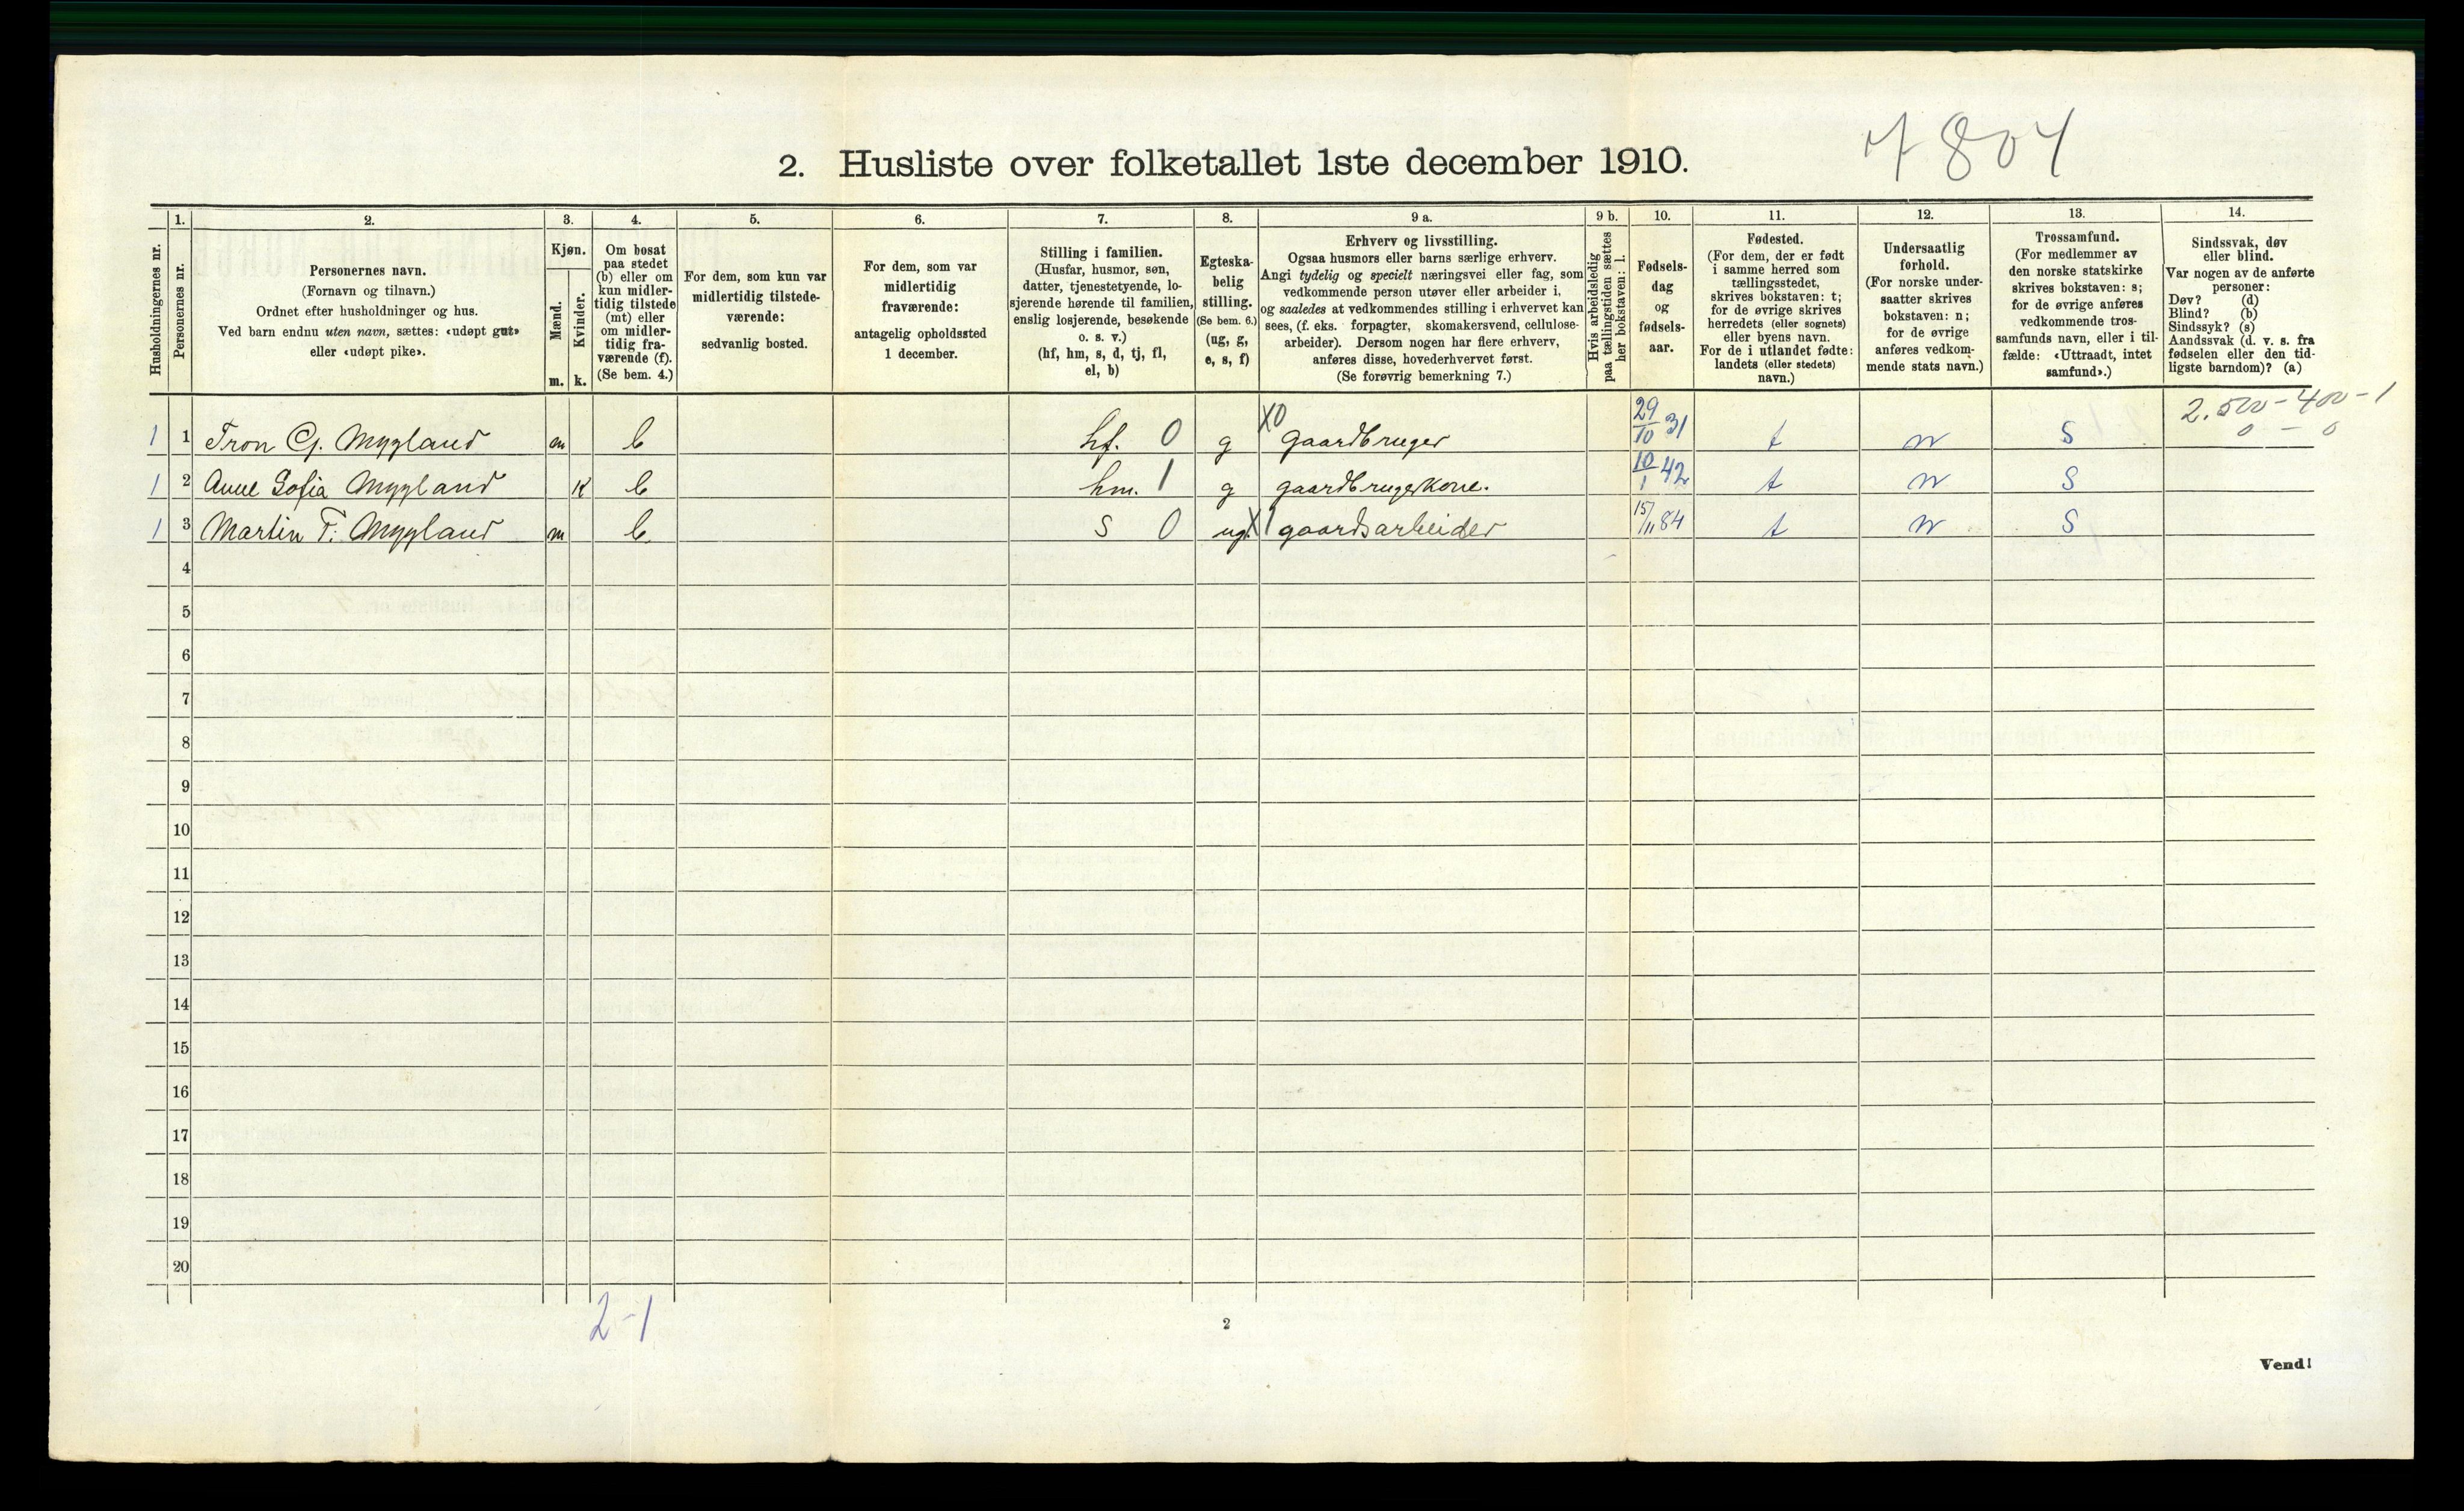 2. Husliste over folketallet 1ste december 1910.
7804
Husholdningernes nr.
1. Personernes nr.
2. Personernes navn.
(Fornavn og tilnavn.)
Ordnet efter husholdninger og hus.
Ved barn endnu uten navn, sættes: «udøpt gut»
eller «udøpt pike».
3. Kjøn.
Mænd. m.
Kvinder. k.
4. Om bosat
paa stedet
(b) eller om
kun midler-
tidig tilstede
(mt) eller
om midler-
tidig fra-
værende (f).
(Se bem. 4.)
5. For dem, som kun var
midlertidig tilstede-
værende:
sedvanlig bosted.
6. For dem, som var
midlertidig
fraværende:
antagelig opholdssted
1 december.
7. Stilling i familien.
(Husfar, husmor, søn,
datter, tjenestetyende, lo-
sjerende hørende til familien,
enslig losjerende, besøkende
o. s. v.)
(hf, hm, s, d, tj, fl,
el, b)
8. Egteska-
belig
stilling.
(Se bem. 6.)
(ug, g,
e, s, f)
9 a. Erhverv og livsstilling.
Ogsaa husmors eller barns særlige erhverv.
Angi tydelig og specielt næringsvei eller fag, som
vedkommende person utøver eller arbeider i,
og saaledes at vedkommendes stilling i erhvervet kan
sees, (f. eks. forpagter, skomakersvend, cellulose-
arbeider). Dersom nogen har flere erhverv,
anføres disse, hovederhvervet først.
(Se forøvrig bemerkning 7.)
9 b. Hvis arbeidsledig
paa tællingstiden sættes
her bokstaven: l.
10. Fødsels-
dag
og
fødsels-
aar.
11. Fødested.
(For dem, der er født
i samme herred som
tællingsstedet,
skrives bokstaven: t;
for de øvrige skrives
herredets (eller sognets)
eller byens navn.
For de i utlandet fødte:
landets (eller stedets)
navn.)
12. Undersaatlig
forhold.
(For norske under-
saatter skrives
bokstaven: n;
for de øvrige
anføres vedkom-
mende stats navn.)
13. Trossamfund.
(For medlemmer av
den norske statskirke
skrives bokstaven: s;
for de øvrige anføres
vedkommende tros-
samfunds navn, eller i til-
fælde: «Uttraadt, intet
samfund».)
14. Sindssvak, døv
eller blind.
Var nogen av de anførte
personer:
Døv? (d)
Blind? (b)
Sindssyk? (s)
Aandssvak (d. v. s. fra
fødselen eller den tid-
ligste barndom)? (a)
2.500-400-1
0 - 0
1 1 Tron G. Mygland m b hf. 0 g X0 gaardbruger 29/10 31 t n S
1 2 Anne Sofia Mygland K b hm. 1 g gaardbrugerkone. 10/1 42 t n S
1 3 Martin T. Mygland m b s 0 ug. X1 gaardsarbeider 15/11 84 t n S
4
5
6
7
8
9
10
11
12
13
14
15
16
17
18
19
20
2-1
2
Vend!